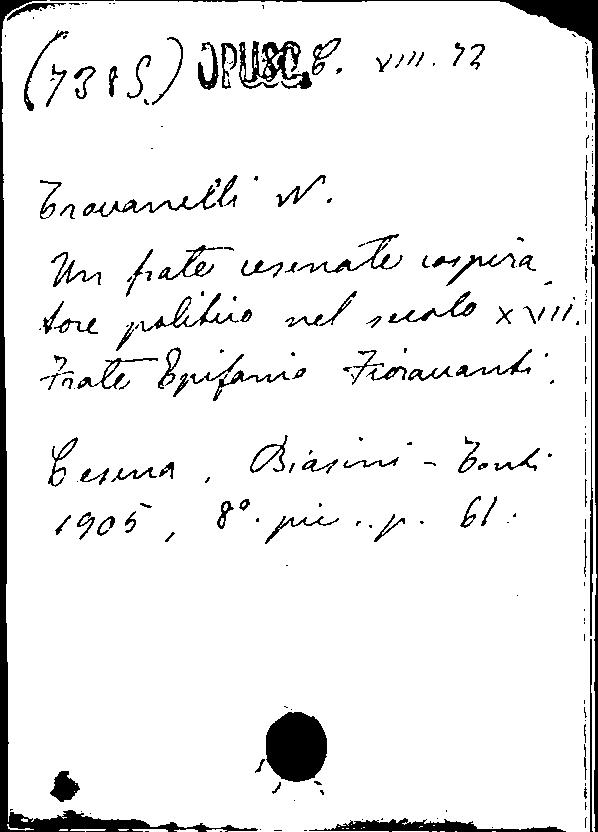 (7385.) OPUSC. 8. VIII. 72
Trovanelli N.
Un frate cesenate cospira
tore politico nel secolo XVII.
Frate Epifanio Fioravanti.
Cesena, Biasini - Tonti
1905, 8°. pic.. p. 61.